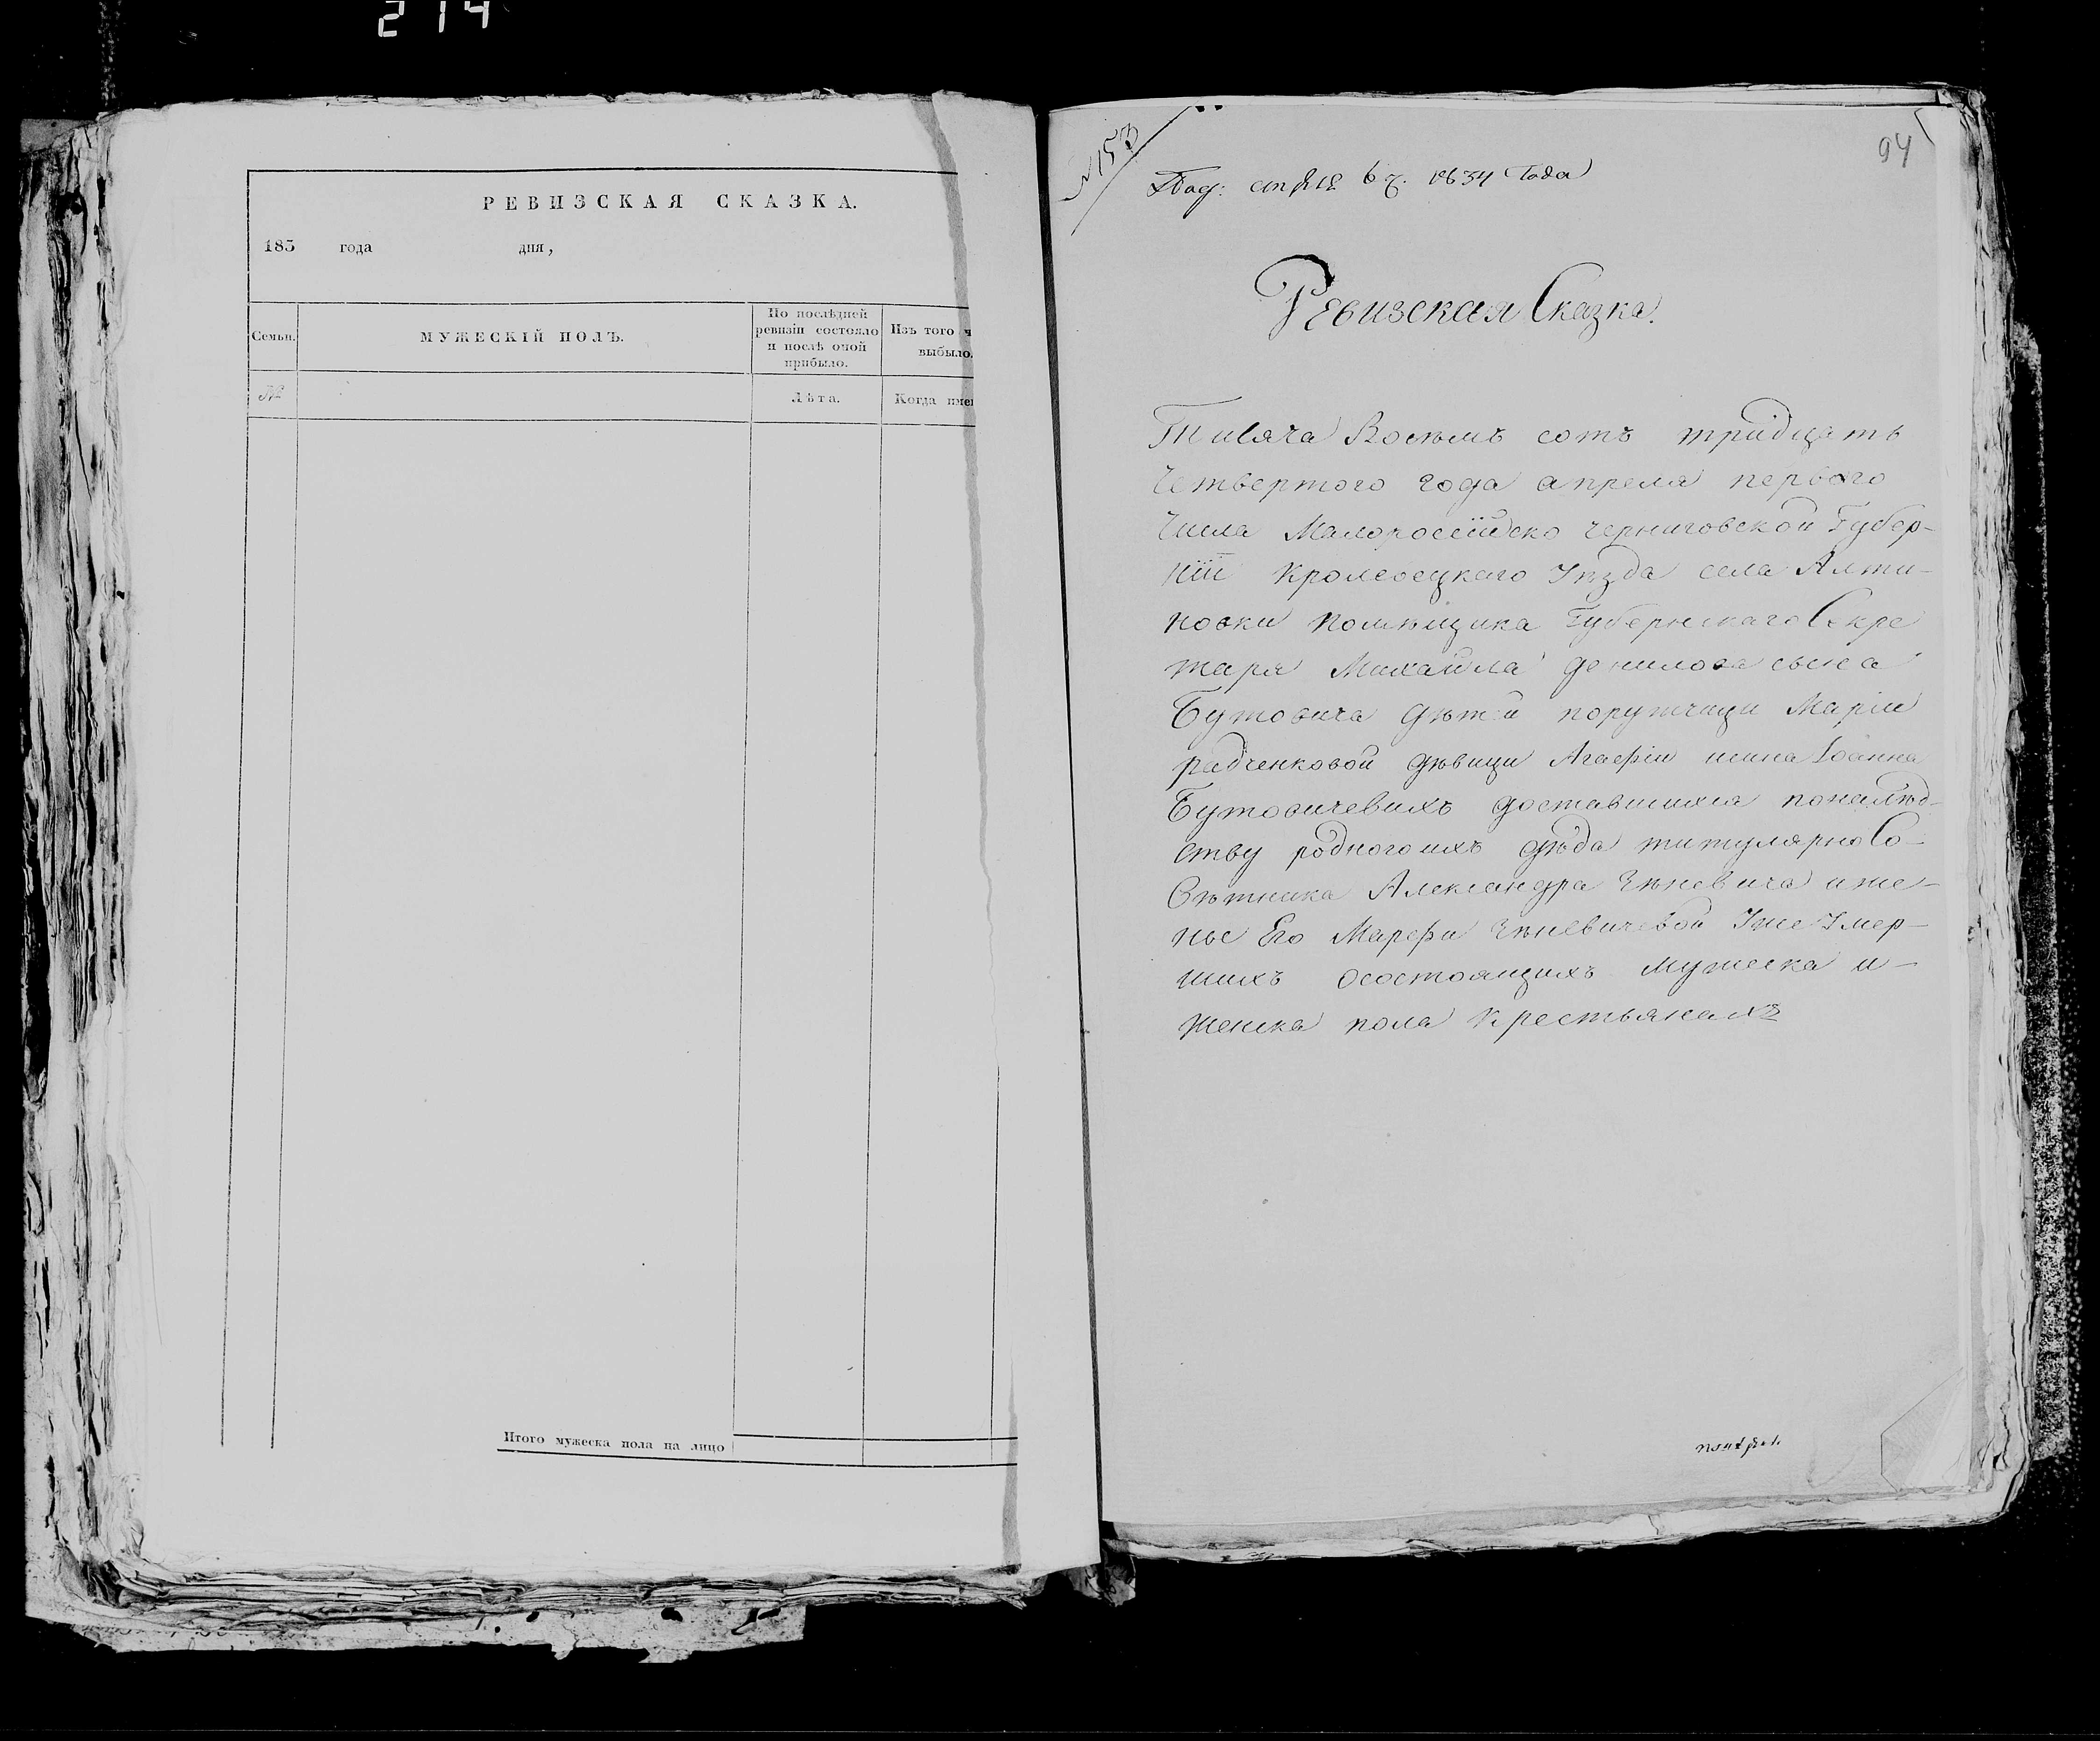 214
РЕВИЗСКАЯ СКАЗКА.
183 года дня,
Семьи.
МУЖЕСКІЙ ПОЛЪ.
По послѣдней
ревизіи состояло
и послѣ оной
прибыло.
Изъ того ч
выбыло.
№
Лѣта.
Когда имен
Итого мужеска пола на лицо
№ 153
94
Под: апреля 6 ч. 1834 Года
Ревизская Сказка.
Тисяча Восѣмъ сотъ тридцать
Четвертого года апреля первого
числа Малоросейско черниговской Губер-
ніи кролевецкаго Уѣзда села Алти-
новки помѣщика Губернскаго Секре
таря Михайла данилова сына
Бутовича дѣтей поручици Маріи
радченковой дѣвици Агафіи исина Іоанна
Бутовичевихъ доставшихся понаслѣд-
ству родного ихъ дѣда титулярно Со-
вѣтника Александра Чѣневича иже-
ные Его Марфи Чѣневичевой Уже Умер-
шихъ осостоящихъ мужеска и-
женска пола крестьянахъ